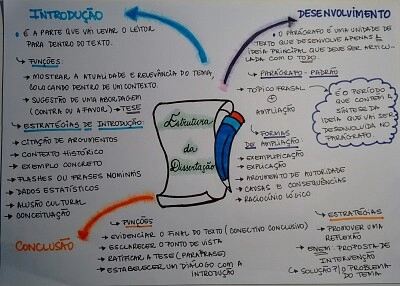 INTRODUÇÃO
• É A PARTE QUE VAI LEVAR O LEITOR
PARA DENTRO DO TEXTO.
FUNÇÕES
• MOSTRAR A ATUALIDADE E RELEVÂNCIA DO TEMA,
COLOCANDO DENTRO DE UM CONTEXTO.
• SUGESTÃO DE UMA ABORDAGEM
(CONTRA OU A FAVOR) → TESE
ESTRATÉGIAS DE INTRODUÇÃO:
• CITAÇÃO DE ARGUMENTOS
• CONTEXTO HISTÓRICO
• EXEMPLO CONCRETO
• FLASHES OU FRASES NOMINAIS
• DADOS ESTATÍSTICOS
• ALUSÃO CULTURAL
• CONCEITUAÇÃO
Estrutura
da
Dissertação
DESENVOLVIMENTO
• O PARÁGRAFO É UMA UNIDADE DE
TEXTO QUE DESENVOLVE APENAS 1
IDEIA PRINCIPAL QUE DEVE SER ARTICU-
LADA COM O TODO.
PARÁGRAFO-PADRÃO
TÓPICO FRASAL
+
AMPLIAÇÃO
É O PERÍODO
QUE CONTÉM A
SÍNTESE DA
IDEIA QUE VAI SER
DESENVOLVIDA NO
PARÁGRAFO.
FORMAS
DE AMPLIAÇÃO:
• EXEMPLIFICAÇÃO
• EXPLICAÇÃO
• ARGUMENTO DE AUTORIDADE
• CAUSAS E CONSEQUÊNCIAS
• RACIOCÍNIO LÓGICO
CONCLUSÃO
FUNÇÕES
• EVIDENCIAR O FINAL DO TEXTO (CONECTIVO CONCLUSIVO)
• ESCLARECER O PONTO DE VISTA
• RATIFICAR A TESE (PARÁFRASE)
• ESTABELECER UM DIÁLOGO COM A
INTRODUÇÃO
ESTRATÉGIAS
• PROMOVER UMA
REFLEXÃO
• ENEM: PROPOSTA DE
INTERVENÇÃO
SOLUÇÃO P/ O PROBLEMA
DO TEMA